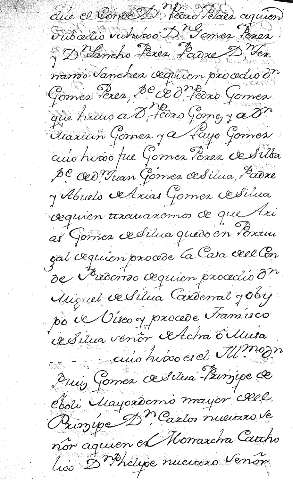 que el Conde Dn. Pedro Pelaez aquien
y Dn. Sancho Perez Padre Dn. Fer-
nando Sanchez de quien procedio Dn.
Gomez Perez, Pe. de Dn. Pedro Gomez
que huuo a Dn. Pedro Gomez y a Dn.
Gomez y a Payo Gomez
cuio huuo fue Gomez Perez de Silba
Pe. de Dn. Juan Gomez de Silua, Padre
y Abuelo de Arias Gomez de Silua
de quien trataremos de que Ari-
as Gomez de Silua quedo en Portu-
gal de quien procede la Casa de el Con
de de quien procedio Dn.
Miguel de Silua Cardenal y obis
po de Viseo y procede Francisco
de Silua señor de Acha ò Musa
cuio huuo es el
Ruiz Gomez de Silua Principe de
Eboli Mayordomo mayor de el
Principe Dn. Carlos nuestro se
ñor aquien el Monarcha Catho
lico Dn. Phelipe nuestro señor